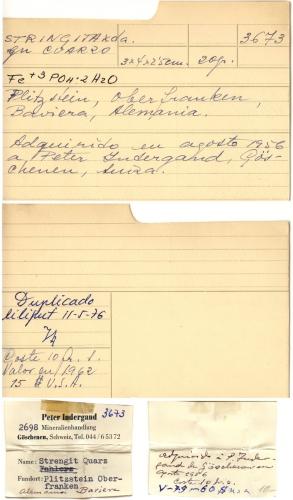 STRINGITA
en CUARZO
3673
3x4x2.5cm.
20gr.
Fe+3PO4·2H2O
Plitzstein, Oberfranken,
Baviera, Alemania.
Adquirido en agosto 1956
a, Peter Indergand, Gös-
chenen, Suiza.
Duplicado
liliput 11-5-76
Coste 10
Valor en 1962
15 $ U.S.A.
Peter Indergand
3673
2698 Mineralienhandlung
Göschenen, Schweiz, Tel. 044/65372
Name: Strengit Quarz
Fundort: Plitzstein Ober-
franken
Alemania Baviera
Adquirido a P. Inder-
gand de Göschenen en
agosto 1956
Coste 10